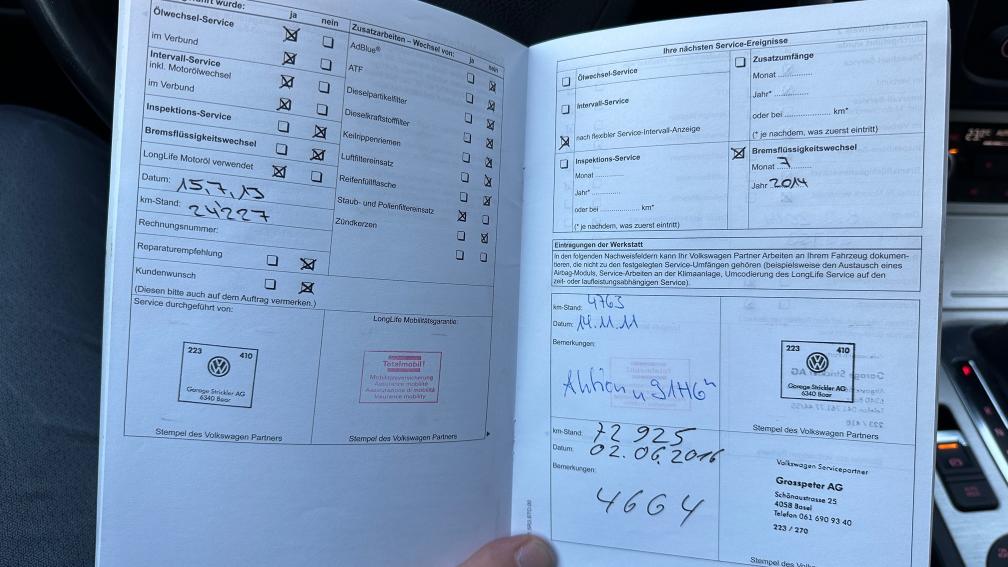 ja nein
Ölwechsel-Service
im Verbund
Intervall-Service
inkl. Motorölwechsel
im Verbund
Inspektions-Service
Bremsflüssigkeitswechsel
LongLife Motoröl verwendet
Datum: 15.7.13
km-Stand: 24'227
Rechnungsnummer:
Reparaturempfehlung
Kundenwunsch
(Diesen bitte auch auf dem Auftrag vermerken.)
Zusatzarbeiten – Wechsel von:
ja nein
AdBlue®
ATF
Dieselpartikelfilter
Dieselkraftstofffilter
Keilrippenriemen
Luftfiltereinsatz
Reifenfüllflasche
Staub- und Pollenfiltereinsatz
Zündkerzen
Service durchgeführt von:
223 410
Garage Strickler AG
6340 Baar
Stempel des Volkswagen Partners
LongLife Mobilitätsgarantie:
Totalmobil!
Mobilitätsversicherung
Assurance mobilité
Assicurazione di mobilità
Insurance mobility
Stempel des Volkswagen Partners
Ihre nächsten Service-Ereignisse
Ölwechsel-Service
Intervall-Service
nach flexibler Service-Intervall-Anzeige
Inspektions-Service
Monat
Jahr*
oder bei km*
(* je nachdem, was zuerst eintritt)
Zusatzumfänge
Monat
Jahr*
oder bei km*
(* je nachdem, was zuerst eintritt)
Bremsflüssigkeitswechsel
Monat 7
Jahr 2014
Eintragungen der Werkstatt
In den folgenden Nachweisfeldern kann Ihr Volkswagen Partner Arbeiten an Ihrem Fahrzeug dokumen-
tieren, die nicht zu den festgelegten Service-Umfängen gehören (beispielsweise den Austausch eines
Airbag-Moduls, Service-Arbeiten an der Klimaanlage, Umcodierung des LongLife Service auf den
zeit- oder laufleistungsabhängigen Service).
km-Stand: 4763
Datum: 14.11.11
Bemerkungen:
Aktion "91H6"
223 410
Garage Strickler AG
6340 Baar
Stempel des Volkswagen Partners
km-Stand: 72 925
Datum: 02.06.2016
Bemerkungen:
4664
Volkswagen Servicepartner
Grosspeter AG
Schönaustrasse 25
4058 Basel
Telefon 061 690 93 40
223 / 270
Stempel des Volkswagen